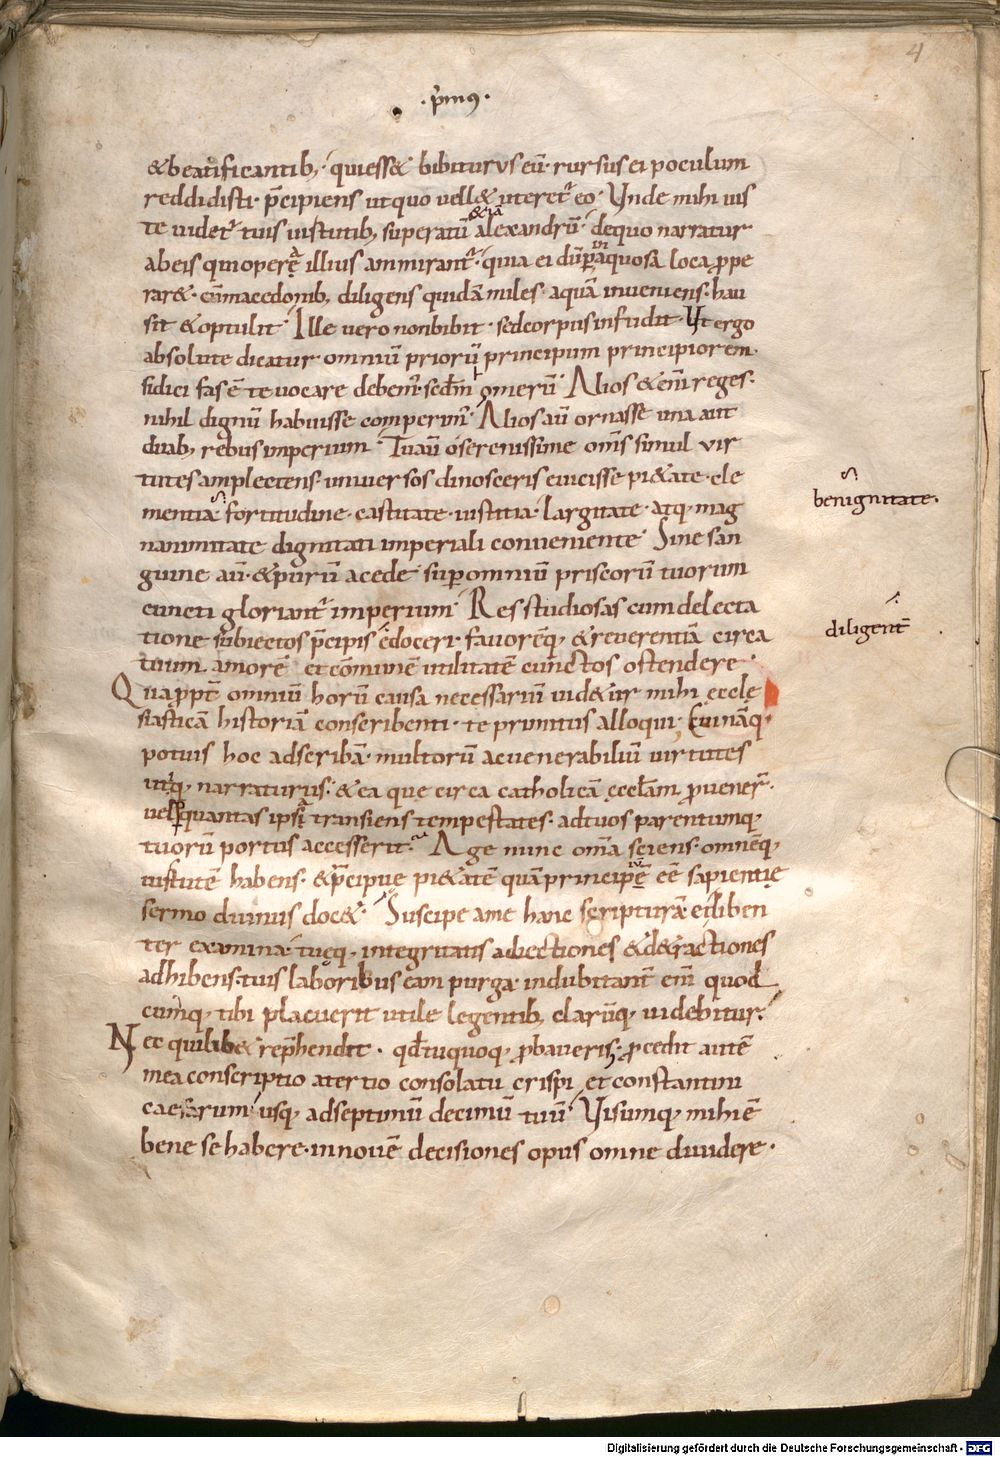 4
· pͥmꝰ ·
&beatificantib; quiess& bibiturus eū· rursus ei poculum
reddidisti· p̄cipiens ut quo uell& uteret᷑ eo· Vnde mihi uis
te uidet᷑ tuis uirtutib; superatū &iā alexandrū· de quo narratur
ab eis qui operę illius ammirant᷑· quia ei dū p in aquosa loca ꝓpe
rar&· cū macedonib; diligens quidā miles· aquā inueniens· hau
sit & optulit· Ille uero non bibit· sed corpus infudit· Vt ergo
absolute dicatur· omniū priorū principum principiorem·
fidici fas ē te uocare debem᷑· sed̄m omerū· Alios & eni reges·
nihil dignū habuisse comperim᷑· Alios aū ornasse una aut
duab; rebus imperium· Tu aū o serenissime om̄s simul vir
tutes amplectens· uniuersos dinosceris euicisse pi&ate· cle
mentia· fortitudine· castitate· iustitia· largitate· atq; mag
benignitate·
nanimitate dignitati imperiali conueniente· Sine san
guine aū· & purū a cede sup omniū priscorū tuorum
cuncti gloriant᷑ imperium· Res studiosas cum delecta
diligent̄
tione subiectos p̄cipis edoceri· fauorēq; & reuerentiā circa
tuum amorē et cōmunē utilitatē cunctos ostendere·
Quapropt̄ omniū horū causa necessariū uid&ur mihi ęcclę
siasticā historiā conscribenti· te primitus alloqui· Cui nāq;
potius hoc adscribā· multorū ac uenerabiliū uirtutes
utiq; narraturus· & ea que circa catholicā ęccl̄am ꝓuener̄·
uel per quantas ipsa transiens tempestates· ad tuos parentumq;
tuorū portus accesserit· Age nunc om̄a sciens· omnēq;
uirtutē habens· & p̄cipuę pi&atē quā principē eē sapientię
sermo diuinus doc&· Suscipe a me hanc scripturā et liben
ter examina· tuęq; integritatis adiectiones & d&ractiones
adhibens· tuis laboribus eam purga· indubitant̄ em̄ quod
cumq; tibi placuerit utile legentib; clarūq; uidebitur·
Nec quilib& rep̄hendit· qd̄ tu quoq; ꝓbaueris· ꝓcedit autē
mea conscriptio a tertio consolatu crispi et constantini
caesarum usq; ad septimū decimū tuū· Visumq; mihi ē
bene se habere· in nouē decisiones opus omne diuidere·
Digitalisierung gefördert durch die Deutsche Forschungsgemeinschaft - DFG